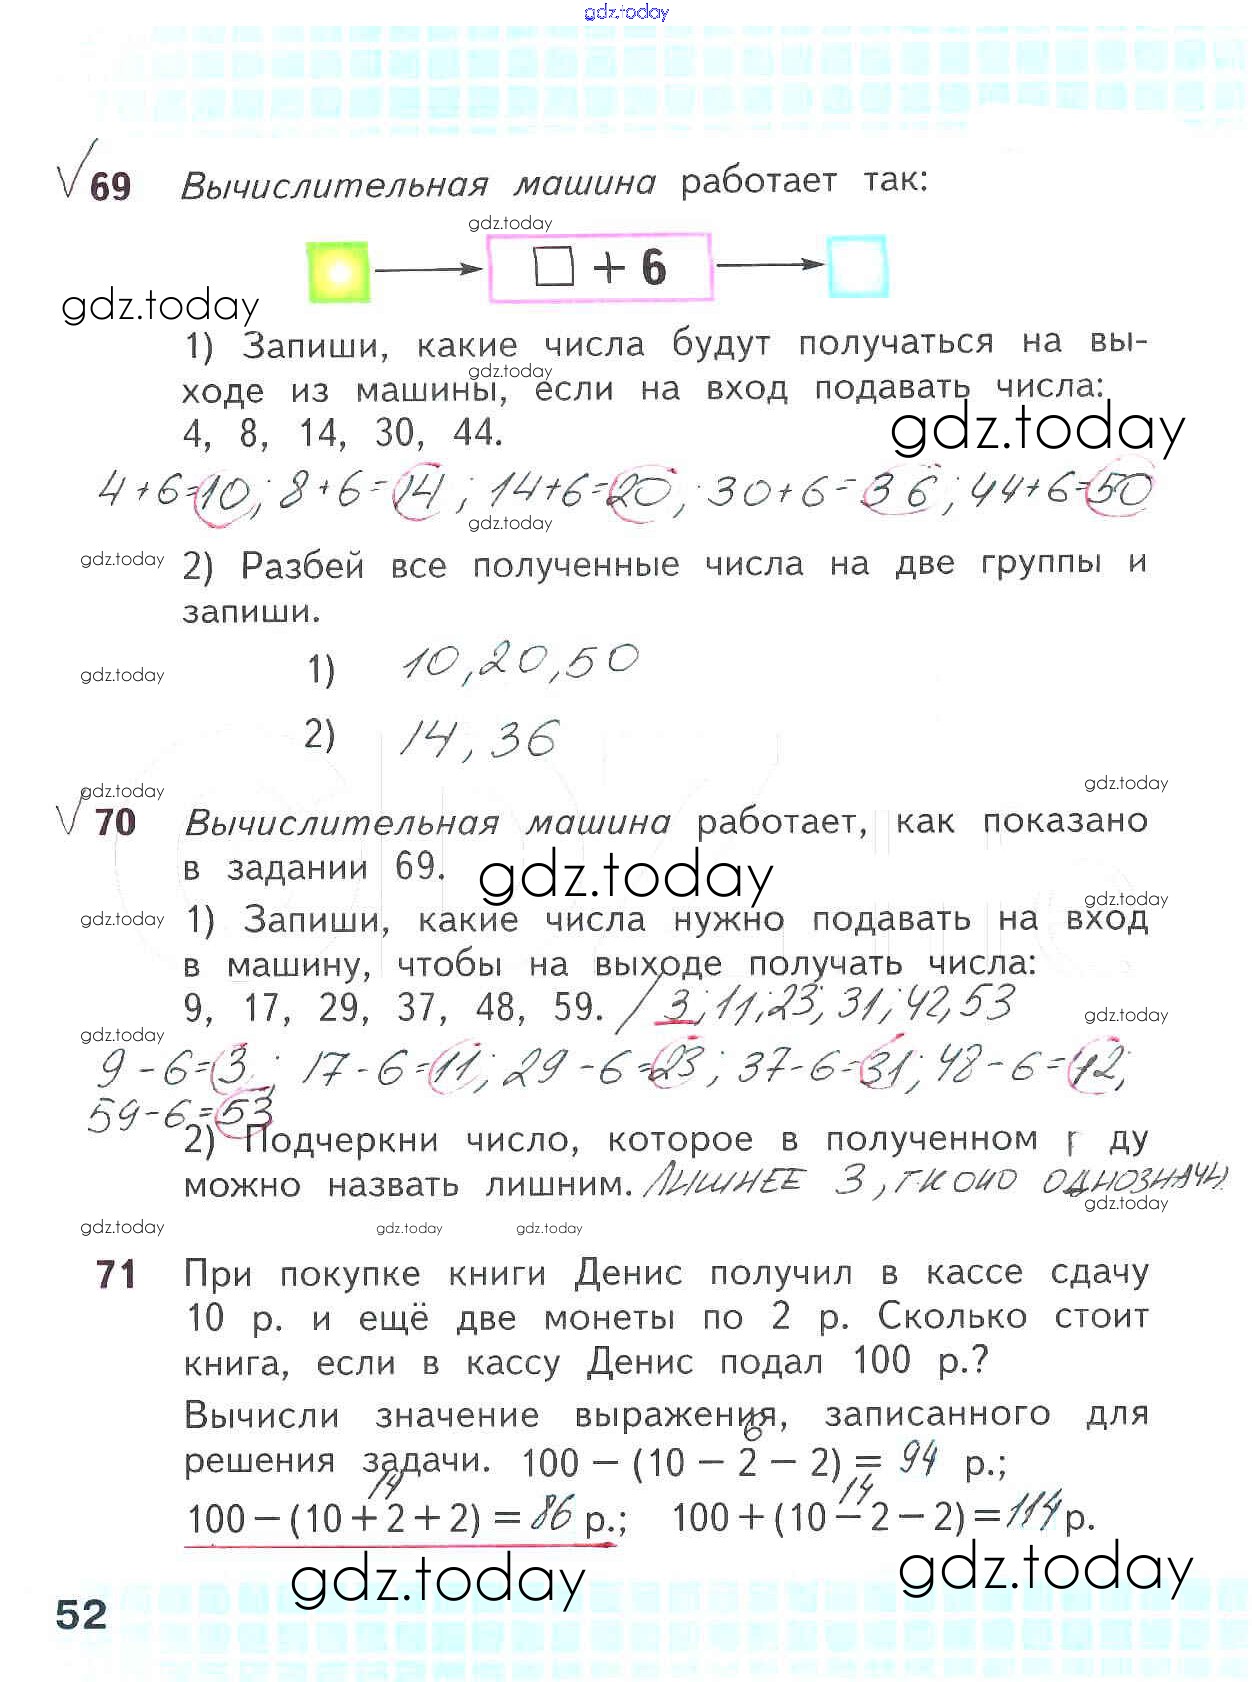 gdz.today
69 Вычислительная машина работает так:
gdz.today
□ + 6
gdz.today
1) Запиши, какие числа будут получаться на вы-
gdz.today
ходе из машины, если на вход подавать числа:
4, 8, 14, 30, 44.
gdz.today
4+6=10; 8+6=14; 14+6=20; 30+6=36; 44+6=50
gdz.today
gdz.today
2) Разбей все полученные числа на две группы и
запиши.
1) 10, 20, 50
gdz.today
2) 14, 36
gdz.today
gdz.today
70 Вычислительная машина работает, как показано
в задании 69.
gdz.today
gdz.today
gdz.today
1) Запиши, какие числа нужно подавать на вход
в машину, чтобы на выходе получать числа:
9, 17, 29, 37, 48, 59. / 3; 11; 23; 31; 42, 53
gdz.today
gdz.today
9-6=3; 17-6=11; 29-6=23; 37-6=31; 48-6=42;
59-6=53
2) Подчеркни число, которое в полученном р ду
можно назвать лишним. Лишнее 3, тк оно однозначн
gdz.today
gdz.today
gdz.today
gdz.today
71 При покупке книги Денис получил в кассе сдачу
10 р. и ещё две монеты по 2 р. Сколько стоит
книга, если в кассу Денис подал 100 р.?
Вычисли значение выражения, записанного для
6
решения задачи. 100 − (10 − 2 − 2) = 94 р.;
14 14
100 − (10 + 2 + 2) = 86 р.; 100 + (10 − 2 − 2) = 114 р.
gdz.today
gdz.today
52